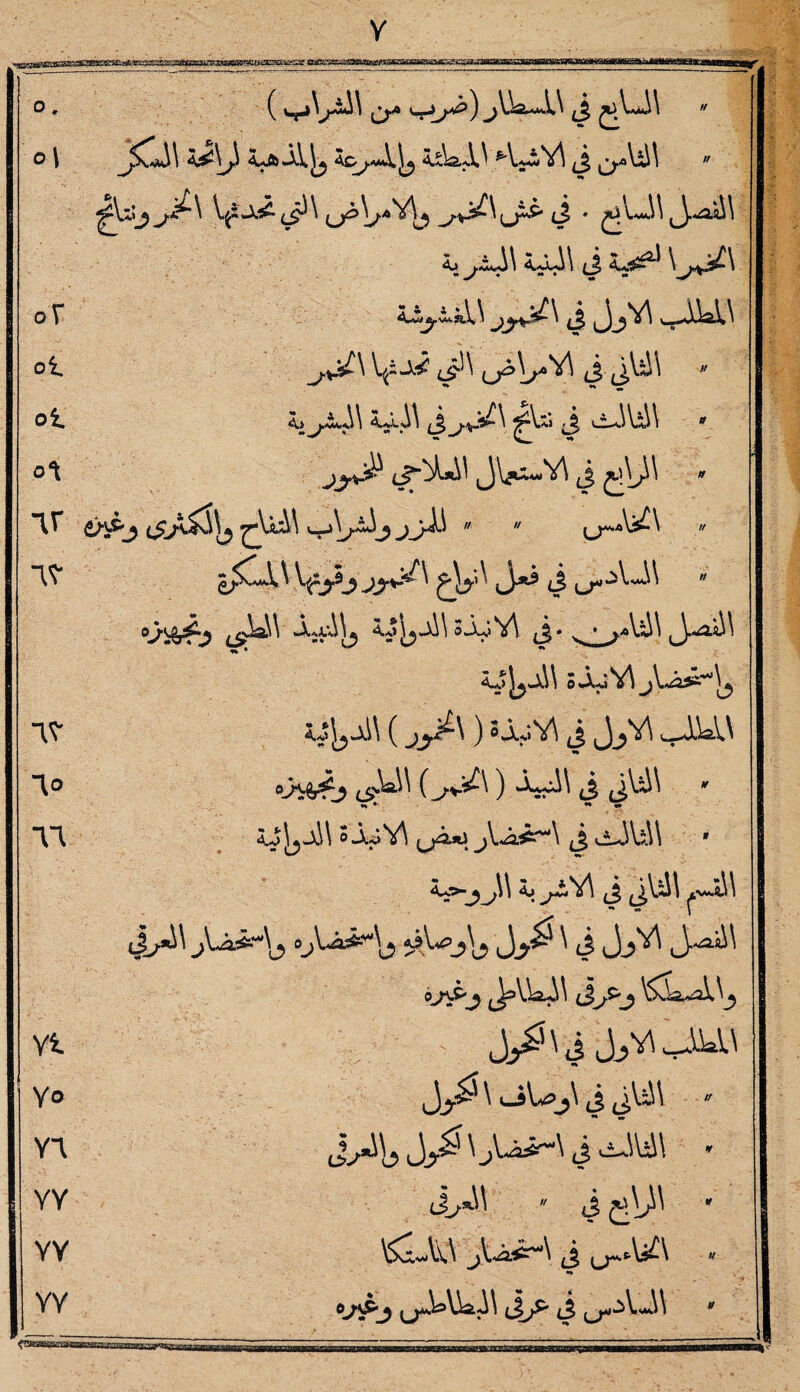 ٧
" السابع في المسطار (ضرب من الشراب) ٥٠
" الثامن في الاشياء المطفئة والمسرعة والمذهبة لرائحة السكر ٥١
الفصل السابع . في غش الخمر والامراض التي تحدثها الخمر ونتائج
في البنية البشرية
المطلب الاول في الخمور المغشوشة ٥٢
" الثاني في الامراض التي تحدثها الخمر ٥٤
" الثالث في نتائج الخمر في البنية البشرية ٥٤
" الرابع في الاستعمال العلاجي للخمور ٥٦
" الخامس " " وشراب التفاح والكمثرى وغيره ٦٢
" السادس في فعل انواع الخمور ٦٣
الفصل الثامن . في الانبذة الدوائية والنبيذ الطبي وتحضيره
واستحضار الانبذة الدوائية
المطلب الاول في الانبذة (الخمور) الدوائية ٦٣
" الثاني في النبيذ (الخمر) الطبي وتحضيره ٦٥
" الثالث في استحضار بعض الانبذة الدوائية ٦٦
القسم الثاني في الاشربة الروحية
الفصل الاول في الكحول واوصافه واستحضاره واستحضار العرقي
والمصطكا وعرقي البطاطس وغيره
المطلب الاول في الكحول ٧٤
" الثاني في اوصاف الكحول ٧٥
" الثالث في استحضار الكحول والعرقي ٧٦
" الرابع في " العرقي ٧٧
" الخامس في استحضار المستكا ٧٧
" السادس في عرقي البطاطس وغيره ٧٧